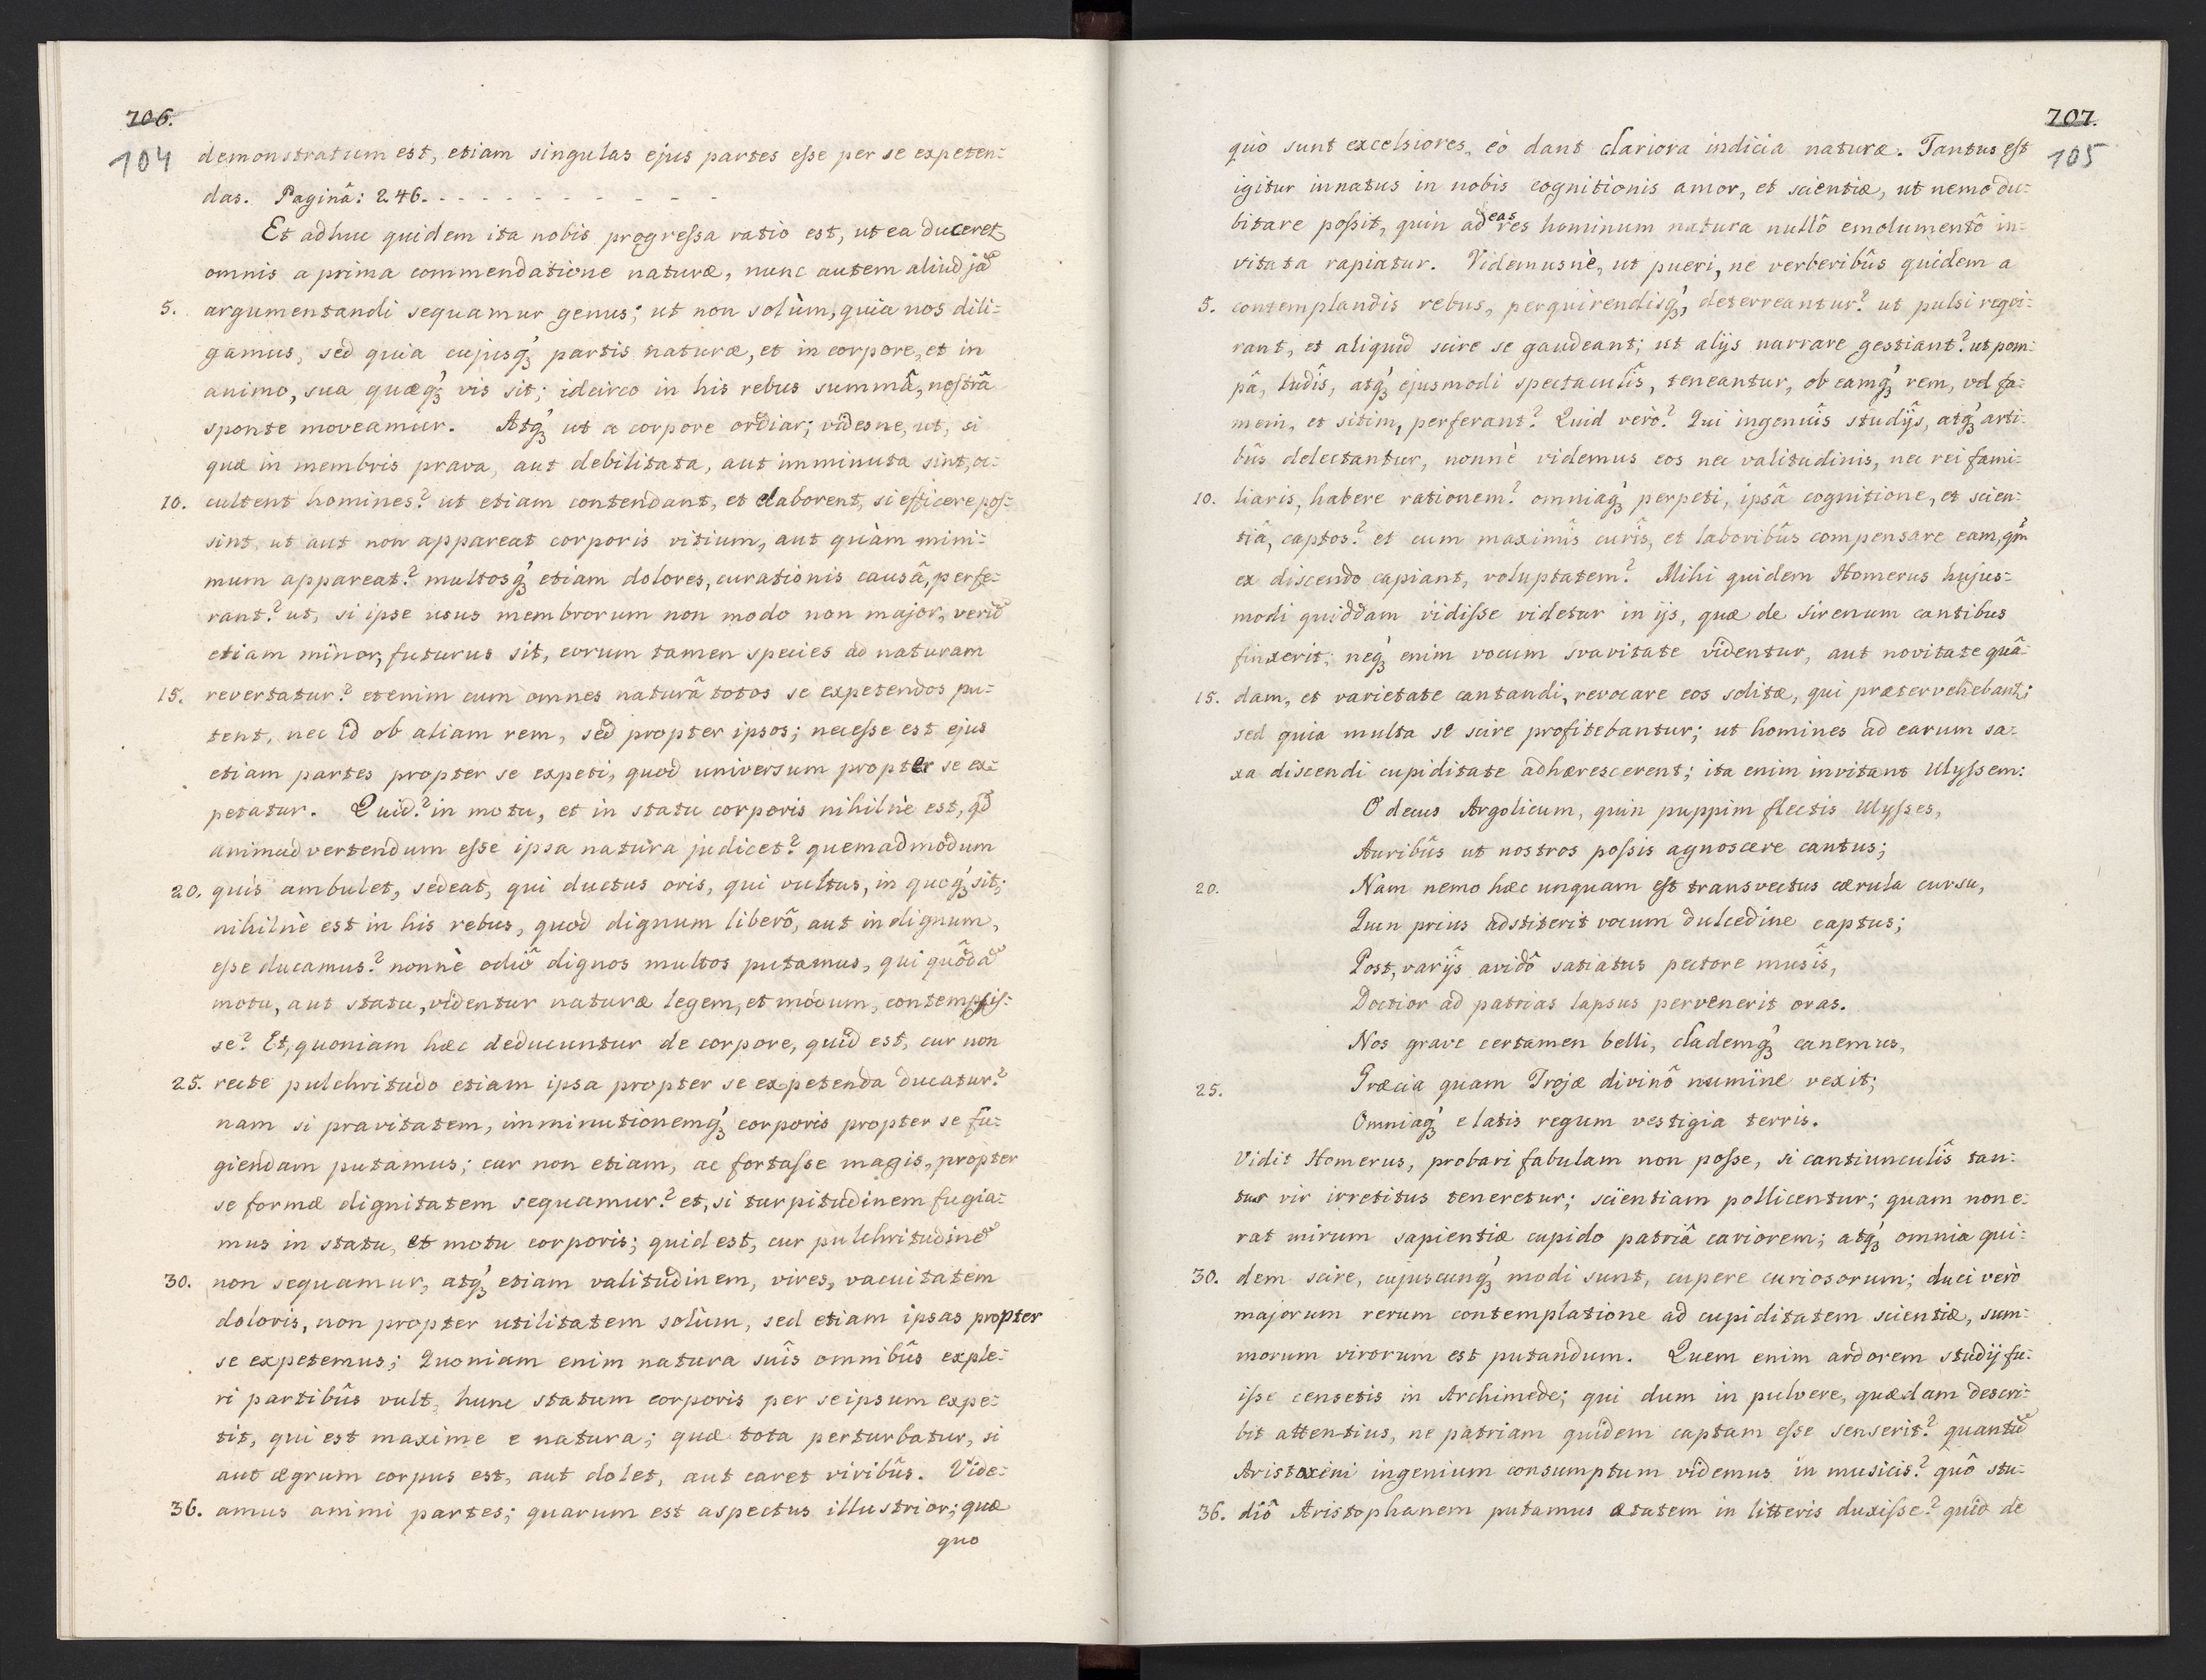 706.
104
demonstratum est, etiam singulas ejus partes eſse per se expeten:
das. Paginâ: 246. - - - - - - - - - - -
Et adhuc quidem ita nobis progreſsa ratio est, ut ea duceret
omnis a prima commendatione naturæ, nunc autem aliud jā
5. argumentandi sequamur genus; ut non solùm, quia nos dili:
gamus, sed quia cujusq́ꝫ partis naturæ, et in corpore, et in
animo, sua quæq́ꝫ vis sit; idcirco in his rebus summâ, noſtrâ
sponte moveamur. Atq́ꝫ ut a corpore ordiar; videsne, ut, si
quæ in membris prava, aut debilitata, aut imminuta sint, oc:
10. cultent homines? ut etiam contendant, et elaborent, si efficere poſ:
sint, ut aut non appareat corporis vitium, aut quàm mini:
mum appareat? multosq́ꝫ etiam dolores, curationis causâ, perfe:
rant? ut, si ipse usus membrorum non modo non major, verū
etiam minor, futurus sit, eorum tamen species ad naturam
15. revertatur? etenim cum omnes naturâ totos se expetendos pu:
tent, nec id ob aliam rem, sed propter ipsos; neceſse est ejus
etiam partes propter se expeti, quod universum propter se ex:
petatur. Quid? in motu, et in statu corporis nihilnè est, qd̄
animadvertendum eſse ipsa natura judicet? quemadmodum
20. quis ambulet, sedeat, qui ductus oris, qui vultus, in quoq́ꝫ sit;
nihilnè est in his rebus, quod dignum liberô, aut indignum,
eſse ducamus? nonnè odiô dignos multos putamus, qui quôdā
motu, aut statu, videntur naturæ legem, et modum, contempsiſ:
se? Et, quoniam hæc deducuntur de corpore, quid est, cur non
25. recte pulchritudo etiam ipsa propter se expetenda ducatur?
nam si pravitatem, imminutionemq́ꝫ corporis propter se fu:
giendam putamus; cur non etiam, ac fortaſse magis, propter
se formæ dignitatem sequamur? et, si turpitudinem fugia:
mus in statu, et motu corporis; quid est, cur pulchritudinē
30. non sequamur, atq́ꝫ etiam valitudinem, vires, vacuitatem
doloris, non propter utilitatem solùm, sed etiam ipsas propter
se expetemus; Quoniam enim natura suîs omnibûs exple:
ri partibûs vult, hunc statum corporis per seipsum expe:
tit, qui est maxime e natura; quæ tota perturbatur, si
aut ægrum corpus est, aut dolet, aut caret viribûs. Vide:
36. amus animi partes; quarum est aspectus illustrior; quæ
quo
707.
105
quò sunt excelsiores, eò dant clariora indicia naturæ. Tantus eſt
igitur innatus in nobis cognitionis amor, et scientiæ, ut nemo du:
bitare poſsit, quin ad eas res hominum natura nullô emolumentô in:
vitata rapiatur. Videmusnè, ut pueri, ne verberibûs quidem a
5. contemplandis rebus, perquirendisq́ꝫ, deterreantur? ut pulsi requi:
rant, et aliquid scire se gaudeant; ut alijs narrare gestiant? ut pom:
pâ, ludîs, atq́ꝫ ejusmodi spectaculîs, teneantur, ob eamq́ꝫ rem, vel fa:
mem, et sitim, perferant? Quid verò? Qui ingenuîs studijs, atq́ꝫ arti:
bûs delectantur, nonnè videmus eos nec valitudinis, nec rei fami:
10. liaris, habere rationem? omniaq́ꝫ perpeti, ipsâ cognitione, et scien:
tiâ, captos? et cum maximîs curîs, et laboribûs compensare eam, qm̄
ex discendo capiant, voluptatem? Mihi quidem Homerus hujus:
modi quiddam vidiſse videtur in ijs, quæ de sirenum cantibus
finxerit; neq́ꝫ enim vocum svavitate videntur, aut novitate quâ:
15. dam, et varietate cantandi, revocare eos solitæ, qui prætervehebant;
sed quia multa se scire profitebantur; ut homines ad earum sa:
xa discendi cupiditate adhærescerent; ita enim invitant Ulyſsem:
O decus Argolicum, quin puppim flectis Ulyſses,
Auribûs ut nostros poſsis agnoscere cantus;
20. Nam nemo hæc unquam eſt transvectus cærula cursu,
Quin prius adstiterit vocum dulcedine captus;
Post, varijs avidô satiatus pectore musîs,
Doctior ad patrias lapsus pervenerit oras.
Nos grave certamen belli, clademq́ꝫ canemus,
25. Græcia quam Trojæ divinô numine vexit;
Omniaq́ꝫ e latis regum vestigia terris.
Vidit Homerus, probari fabulam non poſse, si cantiunculîs tan:
tus vir irretitus teneretur; scientiam pollicentur; quam non e:
rat mirum sapientiæ cupido patriâ cariorem; atq́ꝫ omnia qui:
30. dem scire, cujuscunq́ꝫ modi sunt, cupere curiosorum; duci verò
majorum rerum contemplatione ad cupiditatem scientiæ, sum:
morum virorum est putandum. Quem enim ardorem studij fu:
iſse censetis in Archimede; qui dum in pulvere, quædam descri:
bit attentius, ne patriam quidem captam eſse senserit? quantū
Aristoxeni ingenium consumptum videmus in musicis? quô stu:
36. diô Aristophanem putamus ætatem in litteris duxiſse? quid de